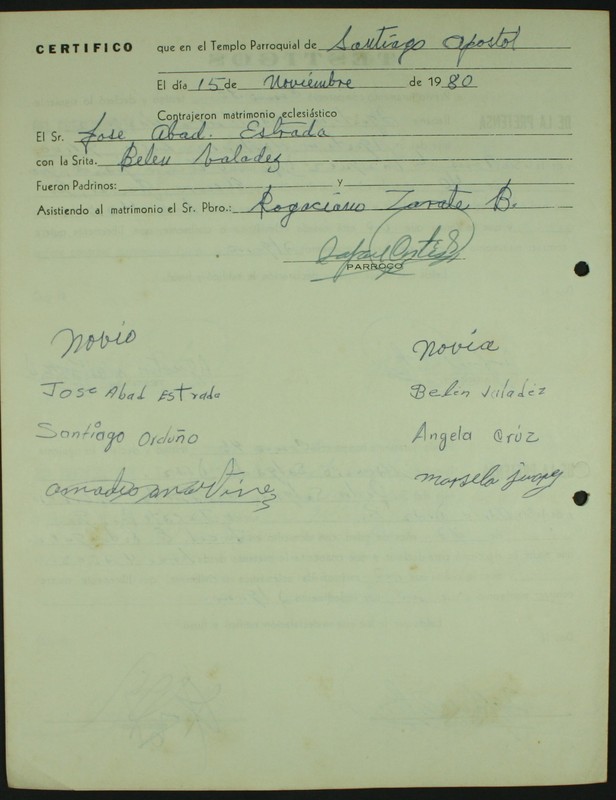 CERTIFICO que en el Templo Parroquial de Santiago Apostol
El día 15 de Noviembre de 1980
Contrajeron matrimonio eclesiástico
El Sr. Jose Abad. Estrada
con la Srita. Belen Valadez
Fueron Padrinos: y
Asistiendo al matrimonio el Sr. Pbro.: Rogaciano Zarate B.
PARROCO
Novio Novia
Jose Abad Estrada Belén Valadez
Santiago Orduño Angela Crúz
amadeo martinez marsela